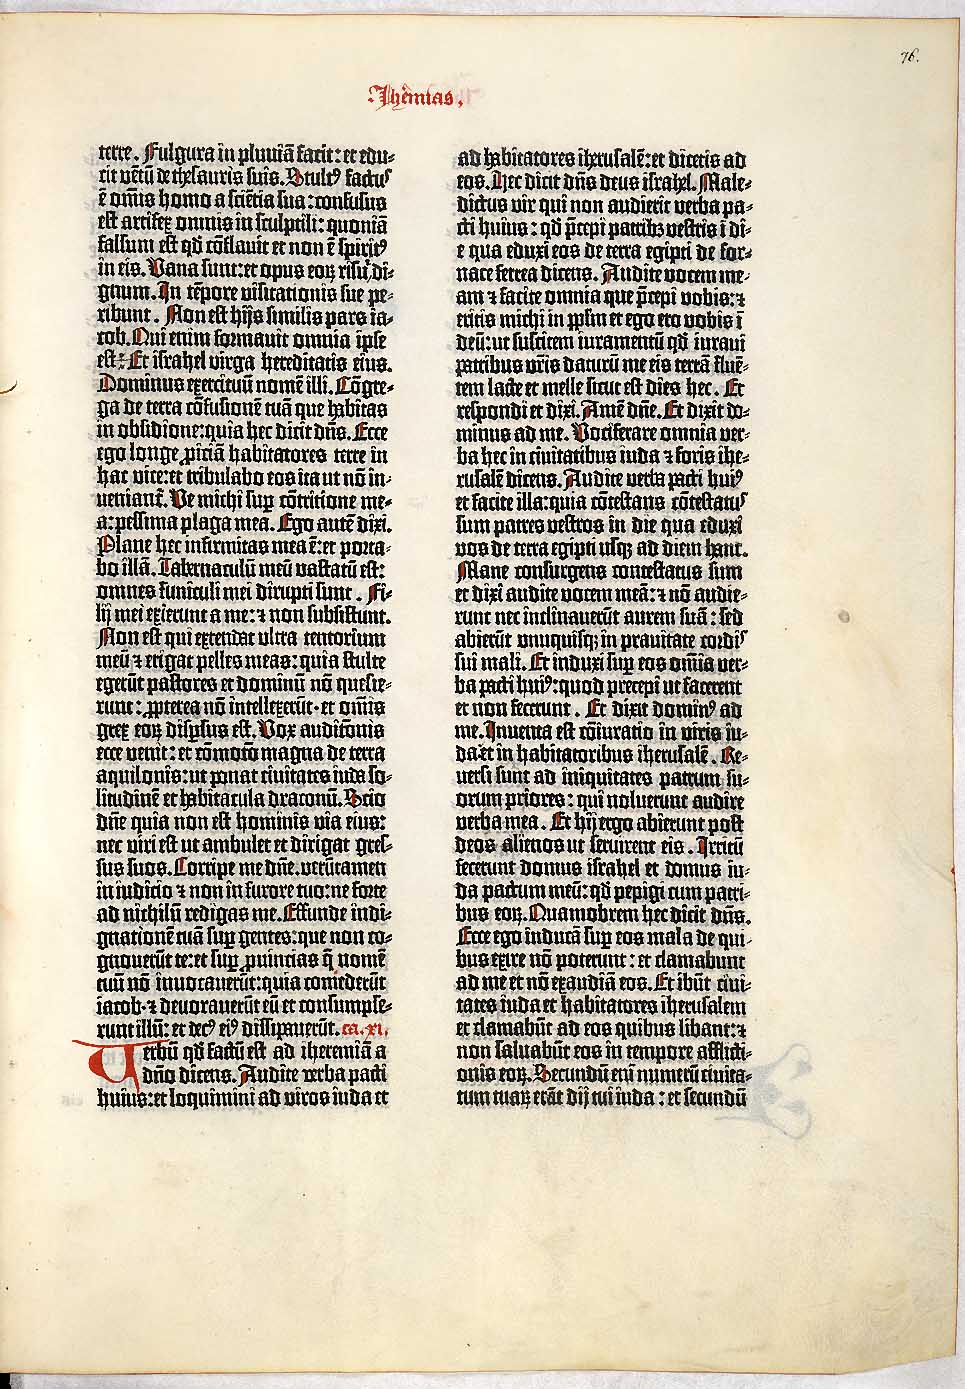 76.
Jheremias.
terre. Fulgura in pluuiā facit: et edu⸗
cit vētū de thesauris suis. Stultꝰ factus
ē om̄is homo a scīētia sua: confusus
est artifex omnis in sculptili: quoniā
falsum est qd̄ cōflauit et non ē spiritꝰ
in eis. Vana sunt: et opus eoꝝ risu di⸗
gnum. In tēpore visitationis sue pe⸗
ribunt. Non est hijs similis pars ia⸗
cob. Qui enim formauit omnia ipse
est: Et israhel virga hereditatis eius.
Dominus exercituū nomē illi. Cōgre⸗
ga de terra cōfusionē tuā que habitas
in obsidione: quia hec dicit dn̄s. Ecce
ego longe ꝓiciā habitatores terre in
hac vice: et tribulabo eos ita ut nō in⸗
ueniant̄. Ve michi suꝑ cōtritione me⸗
a: pessima plaga mea. Ego autē dixi.
Plane hec infirmitas mea ē: et porta⸗
bo illā. Tabernaculū meū vastatū est:
omnes funiculi mei dirupti sunt. Fi⸗
lij mei exierunt a me: ⁊ non subsistunt.
Non est qui extendat ultra tentorium
meū ⁊ erigat pelles meas: quia stulte
egerūt pastores et dominū nō quesie⸗
runt: ꝓpterea nō intellexerūt· et om̄is
grex eoꝝ disꝑsus est. Vox auditōnis
ecce venit: et cōmotō magna de terra
aquilonis: ut ponat ciuitates iuda so⸗
litudinē et habitacula draconū. Scio
dn̄e quia non est hominis via eius:
nec viri est ut ambulet et dirigat gres⸗
sus suos. Corripe me dn̄e. verūtamen
in iudicio ⁊ non in furore tuo: ne forte
ad nichilū redigas me. Effunde indi⸗
gnationē tuā suꝑ gentes: que non co⸗
gnouerūt te: et suꝑ ꝓuincias q̄ nomē
tuū nō inuocauerūt: quia comederūt
iacob· ⁊ deuorauerūt eū et consumpse⸗
runt illū: et decꝰ eiꝰ dissipauerūt. ca. xi.
Verbū qd̄ factū est ad iheremiā a
dn̄o dicens. Audite verba pacti
huius: et loquimini ad viros iuda et
ad habitatores iherusalē: et dicetis ad
eos. Hec dicit dn̄s deus israhel. Male⸗
dictus vir qui non audierit verba pa⸗
cti huius: qd̄ p̄cepi patribꝫ vestris ī di⸗
e qua eduxi eos de terra egipti de for⸗
nace ferrea dicens. Audite vocem me⸗
am ⁊ facite omnia que p̄cepi vobis: ⁊
eritis michi in pp̄lm et ego ero vobis ī
deū: ut suscitem iuramentū qd̄ iuraui
patribus vr̄is daturū me eis terrā flue⸗
tem lacte et melle sicut est dies hec. Et
respondi et dixi. Amē dn̄e. Et dixit do⸗
minus ad me. Vociferare omnia ver⸗
ba hec in ciuitatibus iuda ⁊ foris ihe⸗
rusalē dicens. Audite verba pacti huiꝰ
et facite illa: quia cōtestans cōtestatus
sum patres vestros in die qua eduxi
vos de terra egipti usqꝫ ad diem hanc.
Mane consurgens contestatus sum
et dixi audite vocem meā: ⁊ nō audie⸗
runt nec inclinauerūt aurem suā: sed
abierūt vnusquisqꝫ in prauitate cordis
sui mali. Et induxi suꝑ eos om̄ia ver⸗
ba pacti huiꝰ: quod precepi ut facerent
et non fecerunt. Et dixit dominꝰ ad
me. Inuenta est cōiuratio in viris iu⸗
da et in habitatoribus iherusalē. Re⸗
uersi sunt ad iniquitates patrum su⸗
orum priores: qui noluerunt audire
verba mea. Et hij ergo abierunt post
deos alienos ut seruirent eis. Irritū
fecerunt domus israhel et domus iu⸗
da pactum meū: qd̄ pepigi cum patri⸗
bus eoꝝ. Quamobrem hec dicit dn̄s.
Ecce ego inducā suꝑ eos mala de qui⸗
bus exire nō poterunt: et clamabunt
ad me et nō exaudiā eos. Et ibūt ciui⸗
tates iuda et habitatores iherusalem
et clamabūt ad eos quibus libant: ⁊
non saluabūt eos in tempore afflicti⸗
onis eoꝝ. Secundū eni numerū ciuita⸗
tum tuaꝝ erāt dij tui iuda: et secundū